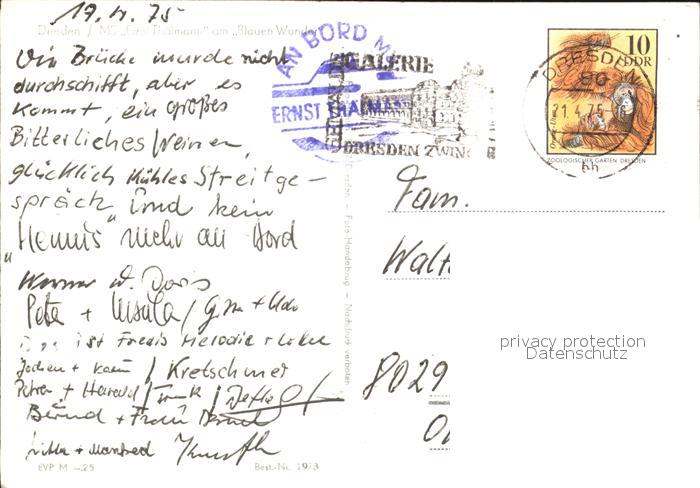 19.4.75
Dresden / MS "Ernst Thälmann" am "Blauen Wunder"
Die Brücke wurde nicht
durchschifft, aber es
kommt, ein großes
Bitterliches Weinen,
glücklich kühles Streitge-
spräch, und kein
"Hennis" mehr an Bord
Werner u. Doris
Peter + Ursula / + Udo
ist Fredis Melodie +
Jochen + Karin / Kretschmer
Petra + Harald /
Bernd + Frau
+ Manfred
EVP M –.25
Best.-Nr. 1973
AN BORD
ERNST THÄLMANN
GEMÄLDE
GALERIE
DRESDEN ZWINGER
10
DDR
DRESDEN
21.4.75
ZOOLOGISCHER GARTEN DRESDEN
hh
Dresden – Foto-Handabzug – Nachdruck verboten
Fam.
Walt
8029
privacy protection
Datenschutz